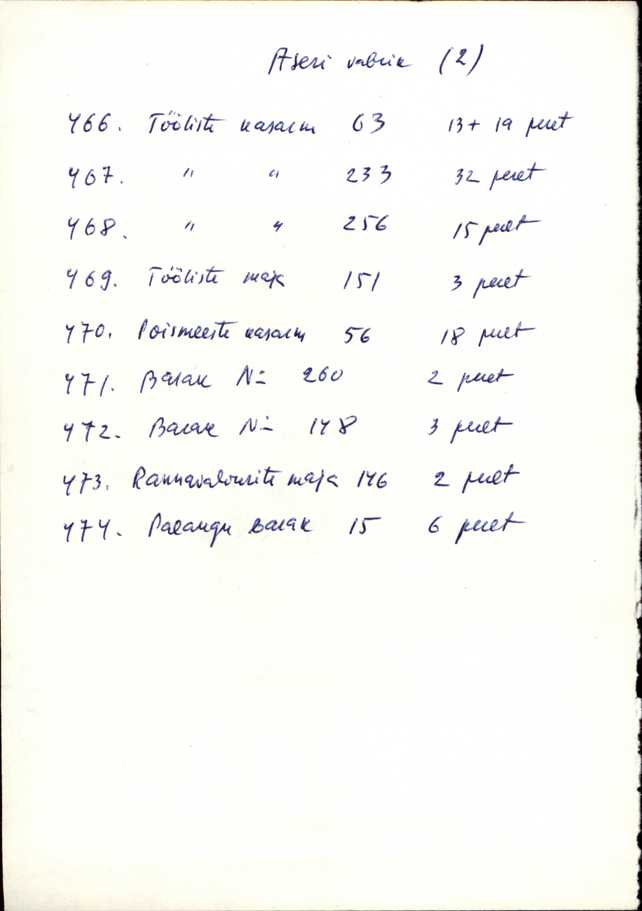 Aseri vabrik (2)
466. Tööliste kasarm 63 13 + 19 peret
467. " " 233 32 peret
468. " " 256 15 peret
469. Tööliste maja 151 3 peret
470. Poismeeste kasarm 56 18 peret
471. Barak N= 260 2 peret
472. Barak N= 148 3 peret
473. Rannavalvurite maja 146 2 peret
474. Palangu barak 15 6 peret